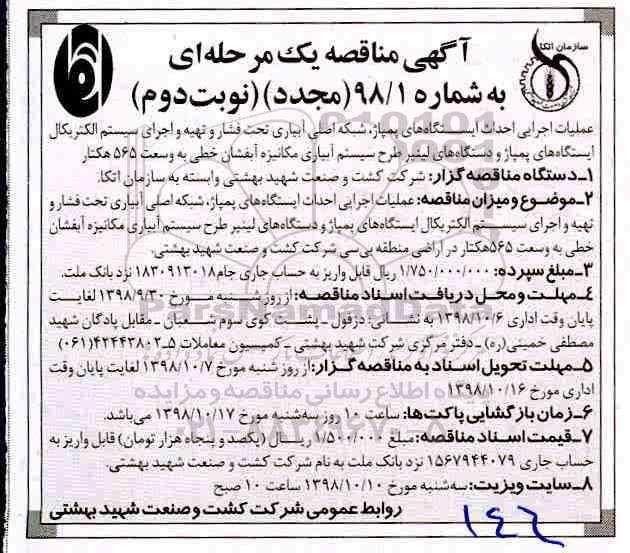 سازمان اتکا
آگهی مناقصه یک مرحله‌ای
به شماره ۹۸/۱ (مجدد) (نوبت دوم)
عملیات اجرایی احداث ایستگاه‌های پمپاژ، شبکه اصلی آبیاری تحت فشار و تهیه و اجرای سیستم الکتریکال
ایستگاه‌های پمپاژ و دستگاه‌های لینیر طرح سیستم آبیاری مکانیزه آبفشان خطی به وسعت ۵۶۵ هکتار
۱ـ دستگاه مناقصه گزار: شرکت کشت و صنعت شهید بهشتی وابسته به سازمان اتکا.
۲ـ موضوع و میزان مناقصه: عملیات اجرایی احداث ایستگاه‌های پمپاژ، شبکه اصلی آبیاری تحت فشار و
تهیه و اجرای سیستم الکتریکال ایستگاه‌های پمپاژ و دستگاه‌های لینیر طرح سیستم آبیاری مکانیزه آبفشان
خطی به وسعت ۵۶۵هکتار در اراضی منطقه بی‌سی شرکت کشت و صنعت شهید بهشتی.
۳ـ مبلغ سپرده: ۱/۷۵۰/۰۰۰/۰۰۰ ریال قابل واریز به حساب جاری جام ۱۸۳۰۹۱۳۰۱۸ نزد بانک ملت.
۴ـ مهلت و محل دریافت اسناد مناقصه: از روز شنبه مورخ ۱۳۹۸/۹/۳۰ لغایت
پایان وقت اداری ۱۳۹۸/۱۰/۶ به نشانی: دزفول ـ پشت کوی سوم شعبان ـ مقابل پادگان شهید
مصطفی خمینی(ره) ـ دفتر مرکزی شرکت شهید بهشتی ـ کمیسیون معاملات ۵ـ۴۲۴۴۳۸۰۲(۰۶۱)
۵ـ مهلت تحویل اسناد به مناقصه گزار: از روز شنبه مورخ ۱۳۹۸/۱۰/۷ لغایت پایان وقت
اداری مورخ ۱۳۹۸/۱۰/۱۶
۶ـ زمان بازگشایی پاکت‌ها: ساعت ۱۰ روز سه‌شنبه مورخ ۱۳۹۸/۱۰/۱۷ می‌باشد.
۷ـ قیمت اسناد مناقصه: مبلغ ۱/۵۰۰/۰۰۰ ریال (یکصد و پنجاه هزار تومان) قابل واریز به
حساب جاری ۱۵۶۷۹۴۴۰۷۹ نزد بانک ملت به نام شرکت کشت و صنعت شهید بهشتی.
۸ـ سایت ویزیت: سه‌شنبه مورخ ۱۳۹۸/۱۰/۱۰ ساعت ۱۰ صبح
روابط عمومی شرکت کشت و صنعت شهید بهشتی